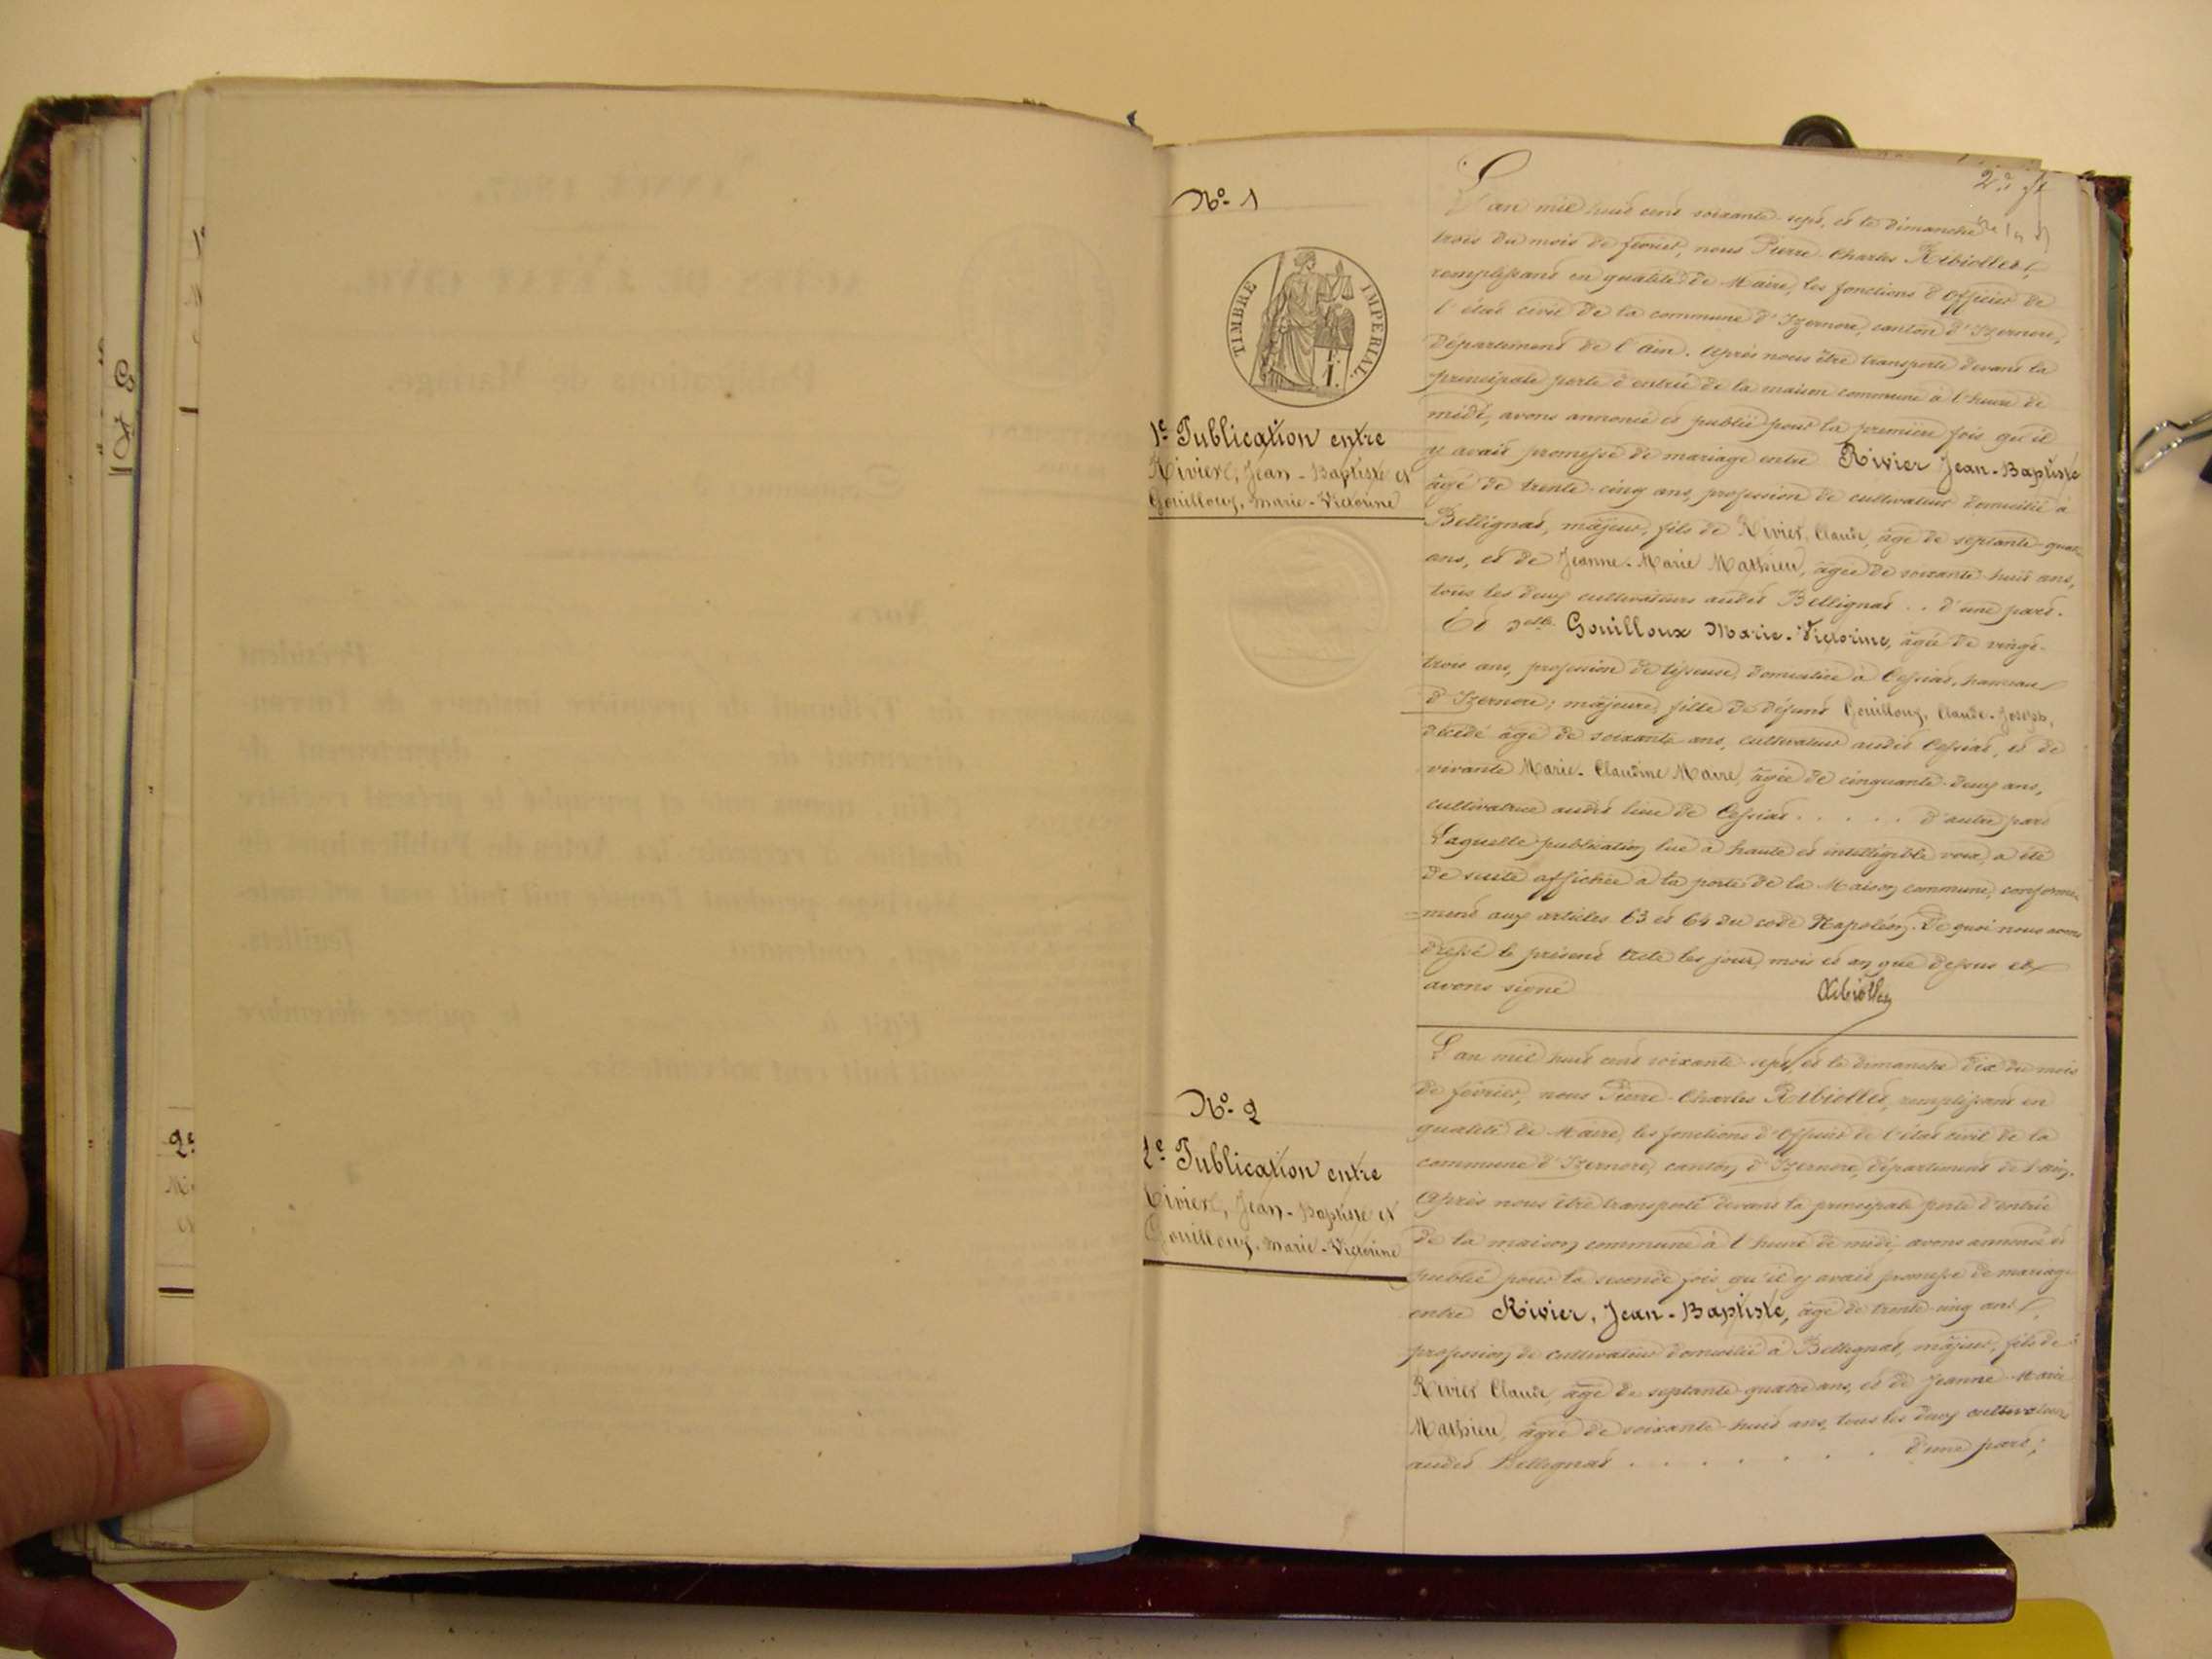 2e ft
No. 1
TIMBRE IMPERIAL
1e Publication entre
Rivier, Jean-Baptiste et
Gouilloux, Marie-Victorine
L'an mil huit cent soixante-sept, et le dimanche
trois du mois de février, nous Pierre-Charles Ribiollet,
remplissant en qualité de Maire, les fonctions d'officier de
l'état civil de la commune d'Izernore, canton d'Izernore,
département de l'Ain. Après nous être transporté devant la
principale porte d'entrée de la maison commune à l'heure de
midi, avons annoncé et publié pour la première fois qu'il
y avait promesse de mariage entre Rivier Jean-Baptiste
âgé de trente-cinq ans, profession de cultivateur domicilié à
Bellignat, majeur, fils de Rivier, Claude, âgé de septante-quatre
ans, et de Jeanne-Marie Mathieu, âgée de soixante-huit ans,
tous les deux cultivateurs audit Bellignat . . d'une part.
Et Delle Gouilloux Marie-Victorine, âgée de vingt-
trois ans, profession de tisseuse, domiciliée à Cessiat, hameau
d'Izernore; majeure, fille de défunt Gouilloux, Claude-Joseph,
décédé âgé de soixante ans, cultivateur audit Cessiat, et de
vivante Marie-Claudine Maire, âgée de cinquante-deux ans,
cultivatrice audit lieu de Cessiat . . . . . d'autre part
Laquelle publication lue à haute et intelligible voix, a été
de suite affichée à la porte de la Maison commune, conformé-
=ment aux articles 63 et 64 du code Napoléon. De quoi nous avons
dressé le présent acte les jour, mois et an que dessus et
avons signé
Ribiollet
No. 2
2e Publication entre
Rivier, Jean-Baptiste et
Gouilloux, Marie-Victorine
L'an mil huit cent soixante-sept, et le dimanche dix du mois
de février, nous Pierre-Charles Ribiollet, remplissant en
qualité de Maire, les fonctions d'officier de l'état civil de la
commune d'Izernore, canton d'Izernore, département de l'Ain.
Après nous être transporté devant la principale porte d'entrée
de la maison commune à l'heure de midi, avons annoncé et
publié pour la seconde fois qu'il y avait promesse de mariage
entre Rivier, Jean-Baptiste, âgé de trente-cinq ans,
profession de cultivateur domicilié à Bellignat, majeur, fils de
Rivier Claude, âgé de septante-quatre ans, et de Jeanne-Marie
Mathieu, âgée de soixante-huit ans, tous les deux cultivateurs
audit Bellignat . . . . . . . d'une part;